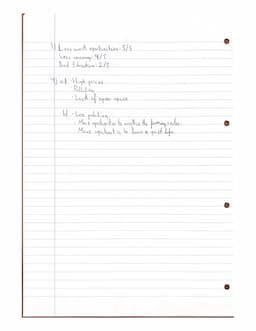 1) Less work opportunities - 3/5
Less money 4/5
Bad Situation - 2/5
4) a) - High prices
- Pollution
- Lack of open space
b) - Less pollution
- More opportunities to work in the farming sector
- More opportunities to have a quiet life